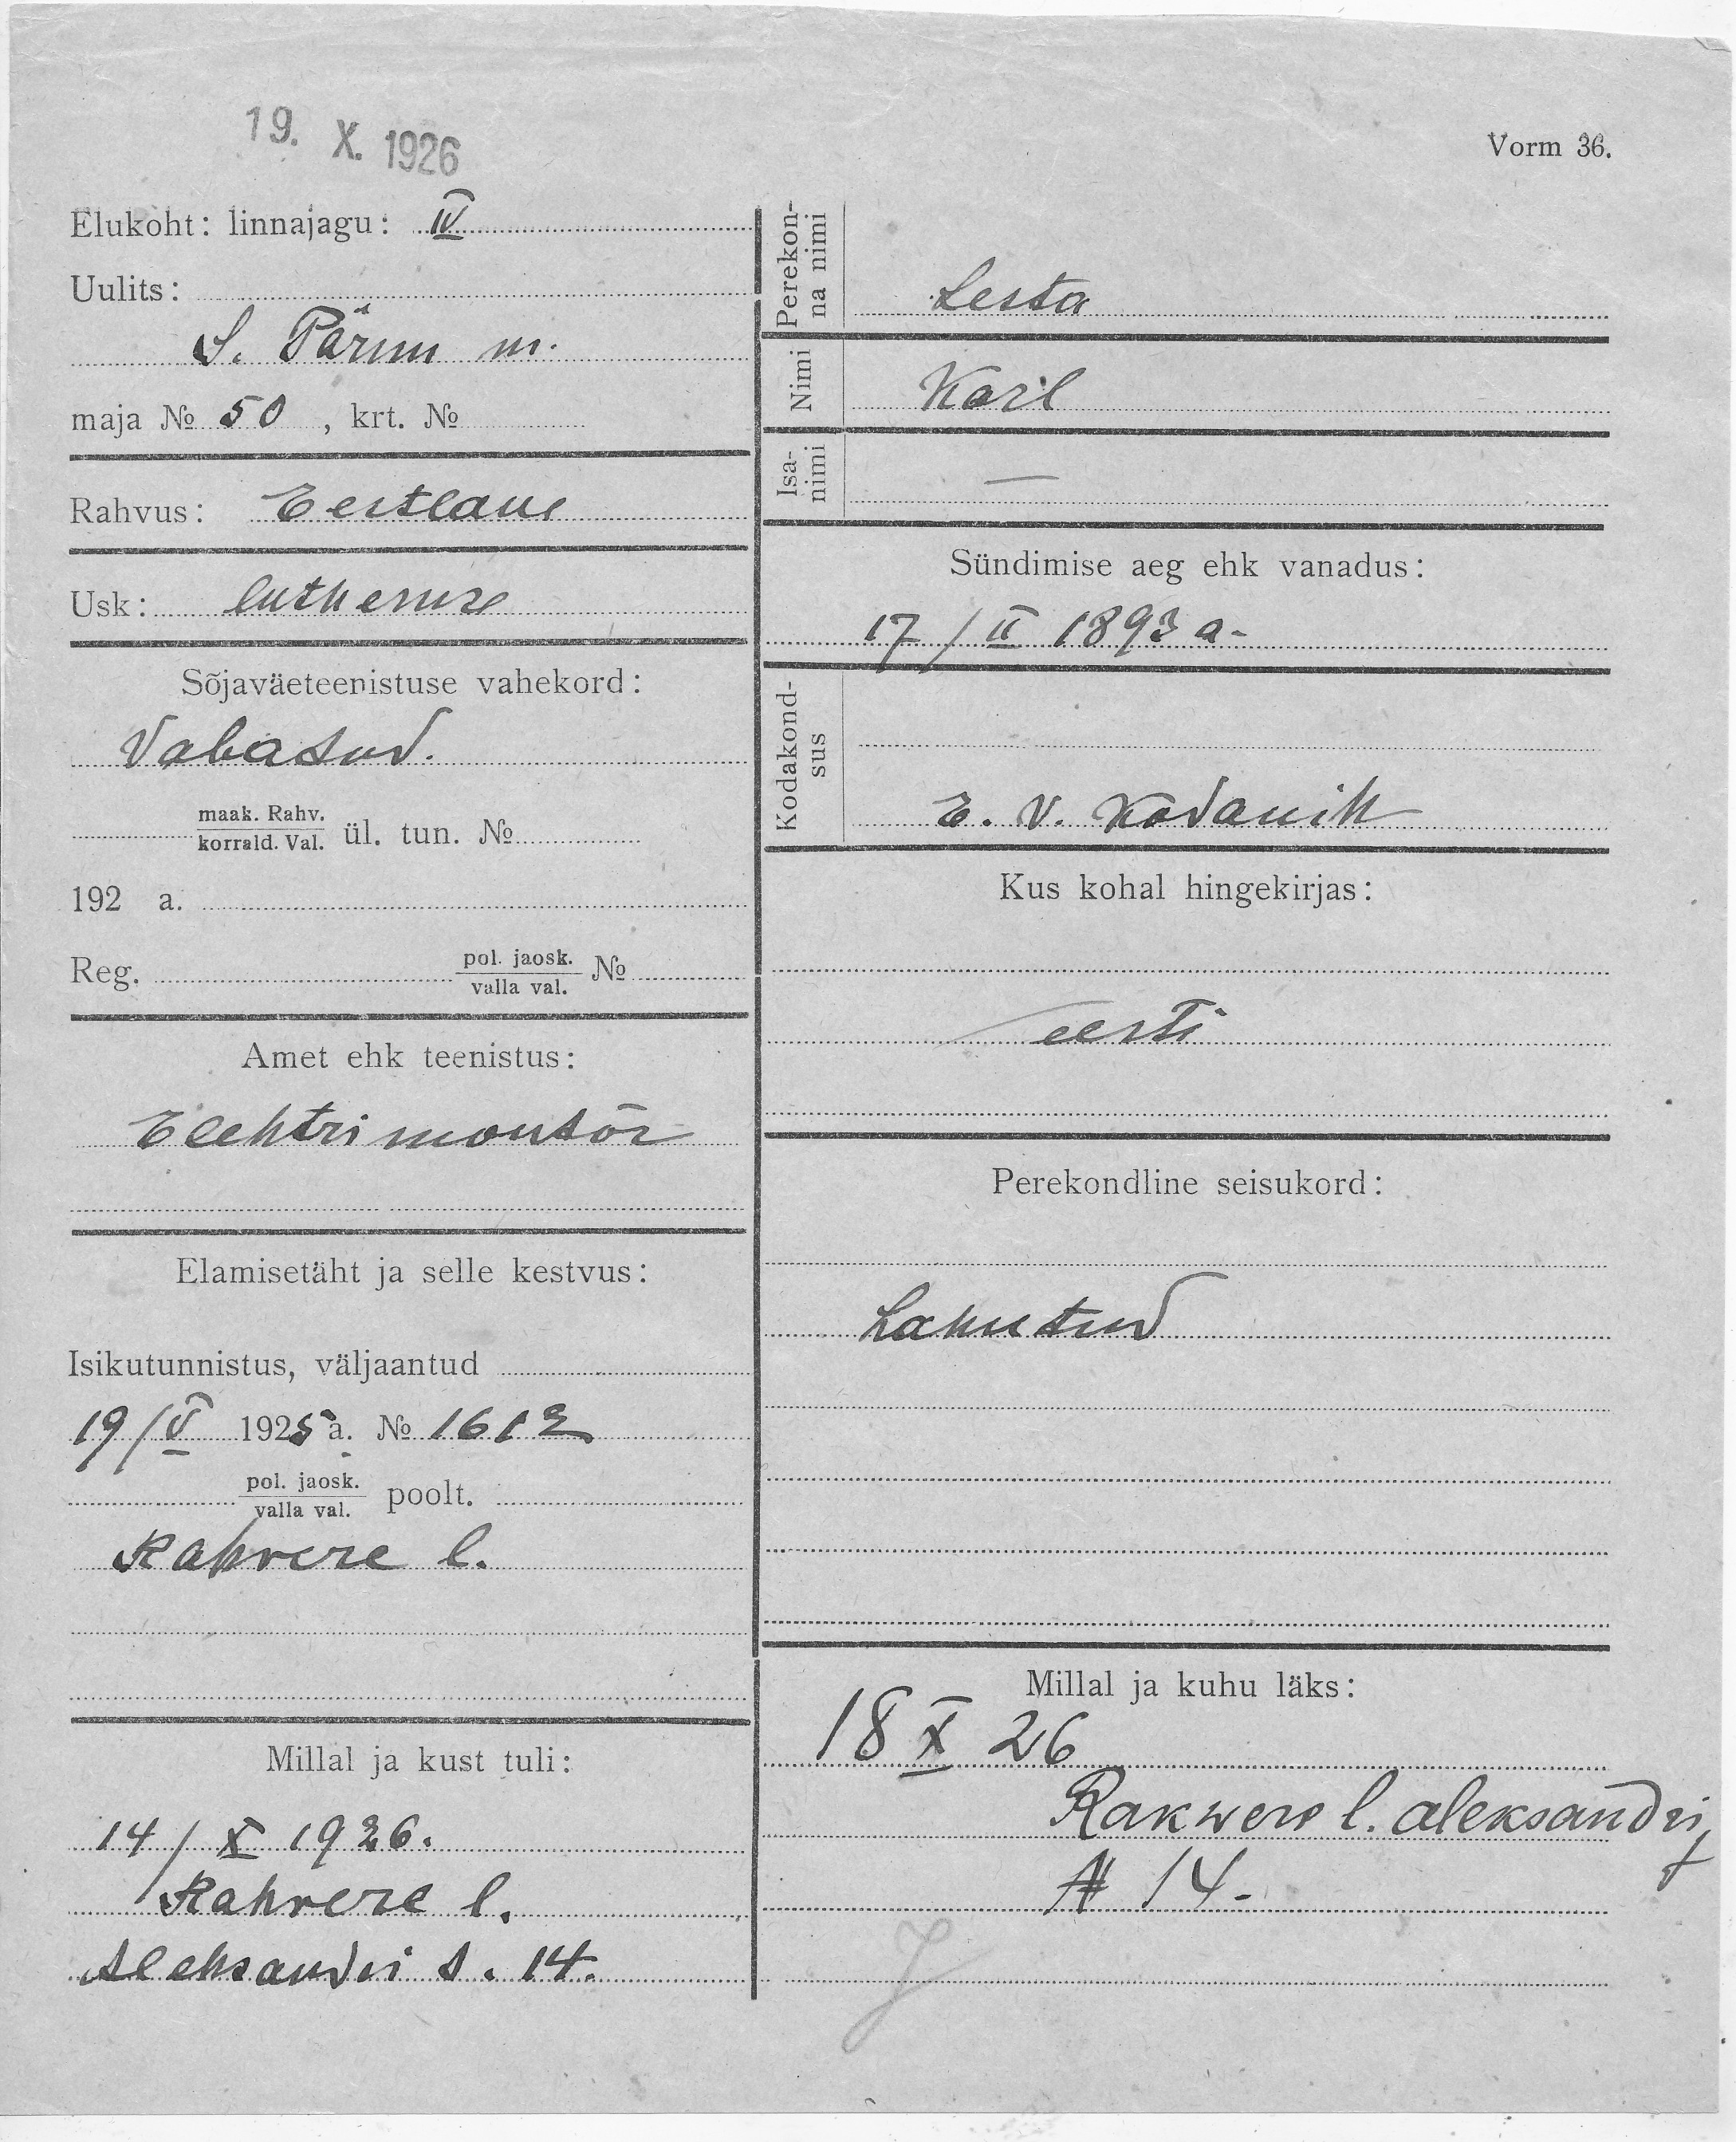 19. X. 1926
Vorm 36.
Elukoht: linnajagu: IV
Uulits:
S. Pärnu m.
maja № 50, krt. №
Rahvus: Eestlane
Usk: lutheruse
Sõjaväeteenistuse vahekord:
Vabastud.
maak. Rahv.
korrald. Val. ül. tun. №
192 a.
Reg. pol. jaosk. №
valla val.
Amet ehk teenistus:
Elektri montör
Elamisetäht ja selle kestvus:
Isikutunnistus, väljaantud
19/V 1925 a. № 1612
pol. jaosk. poolt.
valla val.
Rakvere l.
Millal ja kust tuli:
14/X 1926.
Rakvere l.
Aleksandri t. 14.
Perekon-
na nimi
Lesta
Nimi
Karl
Isa-
nimi
—
Sündimise aeg ehk vanadus:
17/II 1893 a-
Kodakond-
sus
E. V. Kodanik
Kus kohal hingekirjas:
eesti
Perekondline seisukord:
Lahutud
Millal ja kuhu läks:
18 X 26
Rakwere l. Aleksandri t
№ 14-